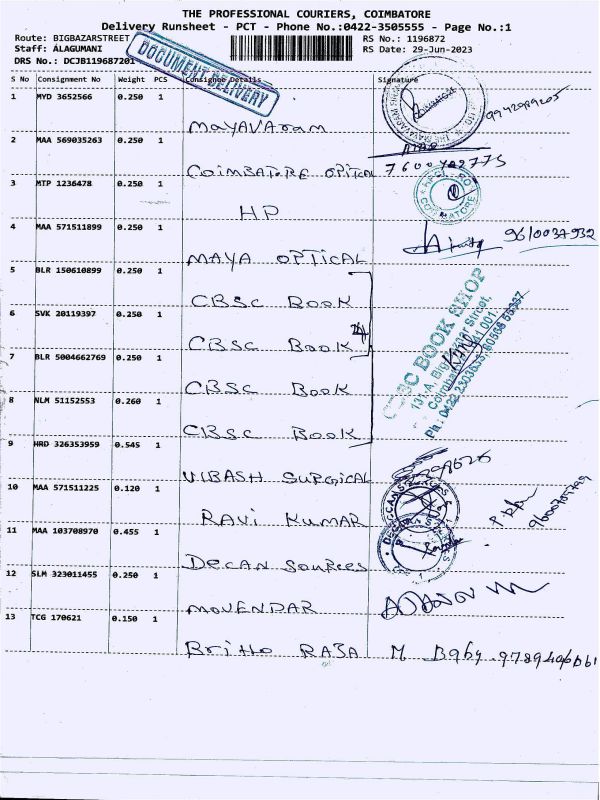 THE PROFESSIONAL COURIERS, COIMBATORE
Delivery Runsheet - PCT - Phone No.:0422-3505555 - Page No.:1
Route: BIGBAZARSTREET RS No.: 1196872
Staff: ALAGUMANI RS Date: 29-Jun-2023
DRS No.: DCJB119687201
DOCUMENT DELIVERY
S No Consignment No Weight PCS Consignee Details Signature
1 MYD 3652566 0.250 1
MAYAVARAM
2 MAA 569035263 0.250 1
COIMBATORE OPTICAL
3 MTP 1236478 0.250 1
HP
4 MAA 571511899 0.250 1 9610037932
MAYA OPTICAL
5 BLR 150610899 0.250 1
CBSC BOOK
6 SVK 20119397 0.250 1
CBSC BOOK
7 BLR 5004662769 0.250 1
CBSC BOOK
8 NLM 51152553 0.260 1
CBSC BOOK
CBSC BOOK SHOP
131-A, Big Bazaar Street,
9 HRD 326353959 0.545 1
VIBASH SURGICAL
10 MAA 571511225 0.120 1
RAVI KUMAR
11 MAA 103708970 0.455 1
DECAN SOURCES
12 SLM 323011455 0.250 1
MOVENDAR
13 TCG 170621 0.150 1
BRITTO RAJA M Baby